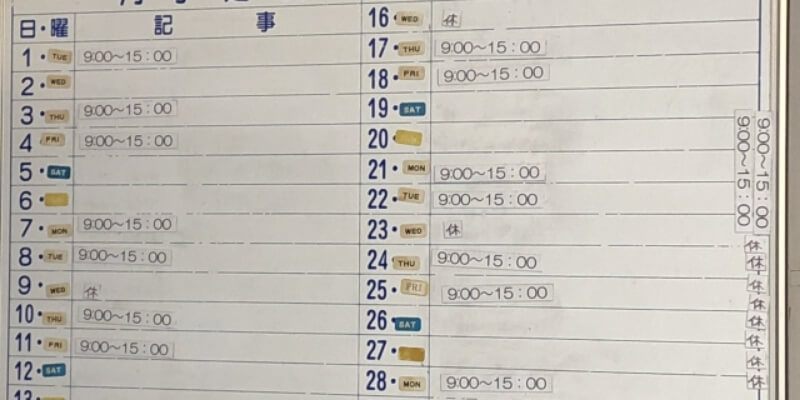 日・曜 記事
1・TUE 9:00~15:00
2・WED
3・THU 9:00~15:00
4・FRI 9:00~15:00
5・SAT
6・
7・MON 9:00~15:00
8・TUE 9:00~15:00
9・WED 休
10・THU 9:00~15:00
11・FRI 9:00~15:00
12・SAT
13・
16・WED 休
17・THU 9:00~15:00
18・FRI 9:00~15:00
19・SAT
20・
21・MON 9:00~15:00
22・TUE 9:00~15:00
23・WED 休
24・THU 9:00~15:00
25・FRI 9:00~15:00
26・SAT
27・
28・MON 9:00~15:00
9:00~15:00
9:00~15:00
休
休
休
休
休
休
休
休